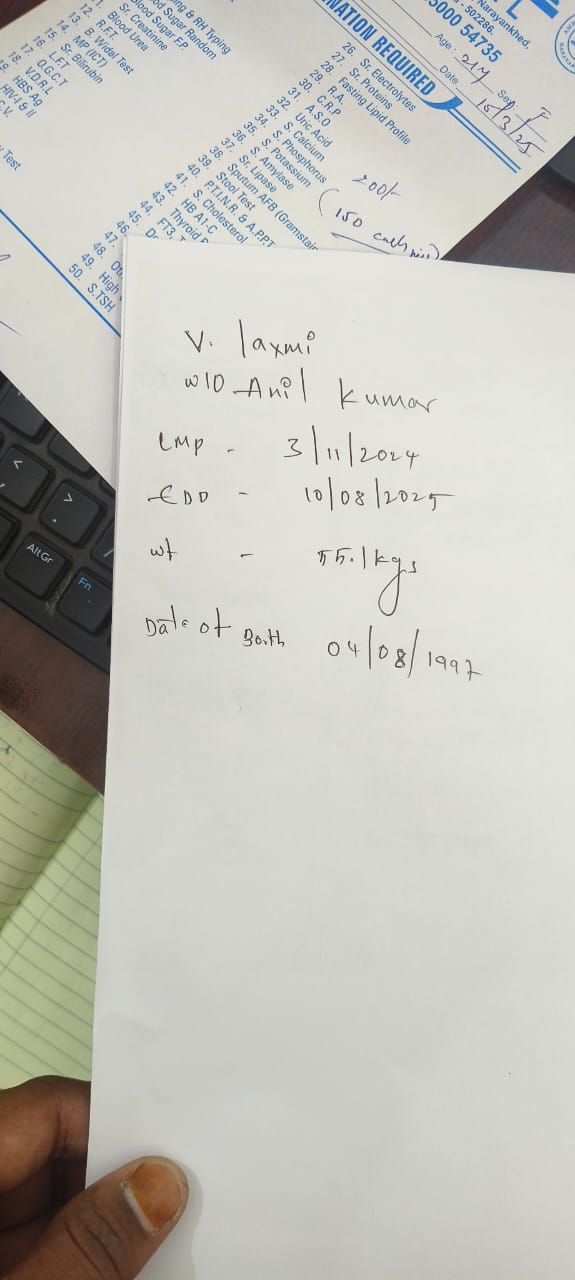 Narayankhed,
-502286.
5000 54735
NATION REQUIRED
Age: 27y Sex: F
Date 15/3/25
ng & RH Typing
ood Sugar Random
lood Sugar F.P.
Sr. Creatinine
11. Blood Urea
12. R.F.T.
13. B. Widel Test
14. MP (ICT)
15. Sr. Bilirubin
16. L.F.T
17. O.G.C.T
18. V.D.R.L
HBS Ag
HIV-I & II
C.V.
Test
26. Sr. Electrolytes
27. Sr. Proteins
28. Fasting Lipid Profile
29. R.A.
30. C.R.P
31. A.S.O
32. Uric Acid
33. S. Calcium
34. S. Phosphorus
35. S. Potassium
36. S. Amylase
37. Sr. Lipase
38. Sputum AFB (Gramstain
39. Stool Test
40. PT.I.N.R & A.P.P.T
41. S. Cholesterol
42. HB A1-C
43. Thyroid
44. FT3
45. D
46.
47.
48.
49. High
50. S.TSH
200/-
V. laxmi
w/o Anil kumar
LMP - 3/11/2024
EDD - 10/08/2025
wt - 55.1kgs
Date of Borth 04/08/1997
<
,
>
.
/
Alt Gr
Fn